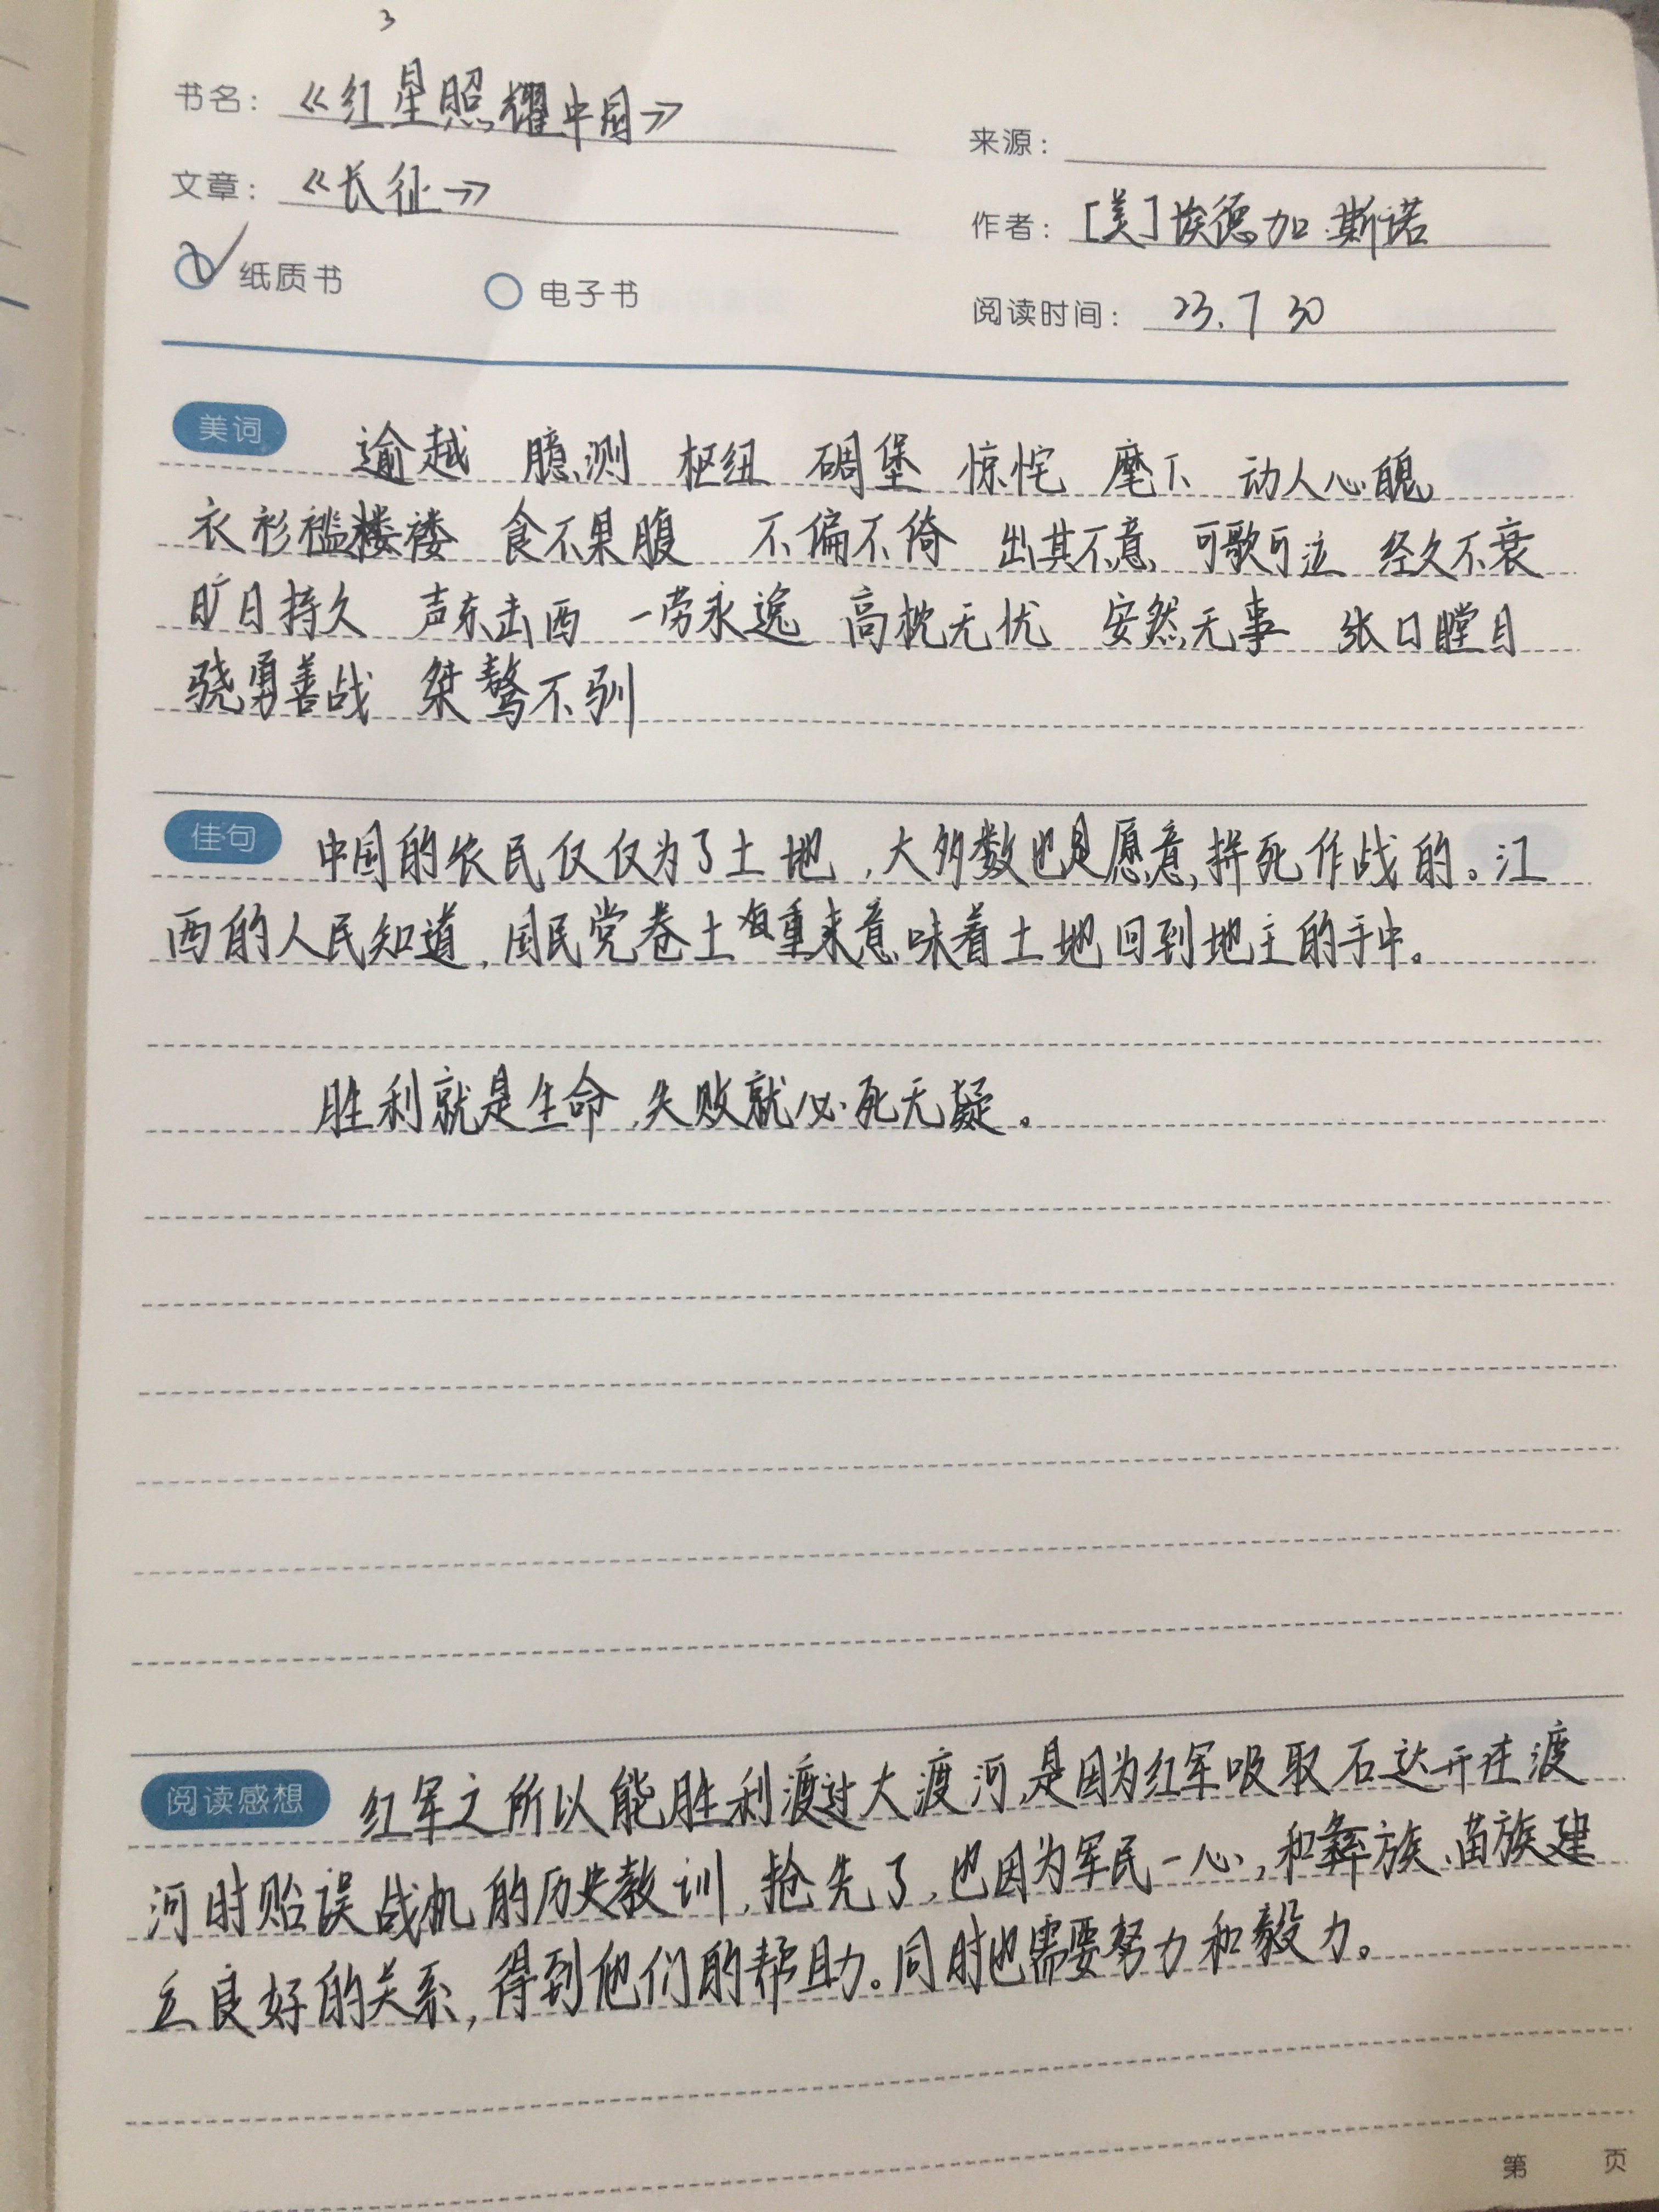 3
书名：《红星照耀中国》
来源：
文章：《长征》
作者：[美]埃德加.斯诺
纸质书 电子书
阅读时间：23.7 30
美词 逾越 臆测 枢纽 碉堡 惊诧 麾下 动人心魄
衣衫褴褛褛 食不果腹 不偏不倚 出其不意 可歌可泣 经久不衰
旷日持久 声东击西 一劳永逸 高枕无忧 安然无事 张口瞠目
骁勇善战 桀骜不驯
佳句 中国的农民仅仅为了土地，大多数也是愿意拼死作战的。江
西的人民知道，国民党卷土重来意味着土地回到地主的手中。
胜利就是生命，失败就必死无疑。
阅读感想 红军之所以能胜利渡过大渡河，是因为红军吸取石达开在渡
河时贻误战机的历史教训，抢先了，也因为军民一心，和彝族、苗族建
立良好的关系，得到他们的帮助。同时也需要努力和毅力。
第 页